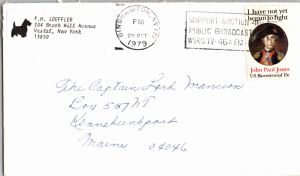 F.H. LOEFFLER
104 Brook Hill Avenue
Vestal, New York
13850
BINGHAMTON, NY
PM
29 OCT
1979
SUPPORT AUCTION
PUBLIC BROADCAST
WSKG TV-46 FM-
I have not yet
begun to fight
John Paul Jones
US Bicentennial 15c
The Captain Lord Mansion
Box 527
Kennebunkport
Maine 04046